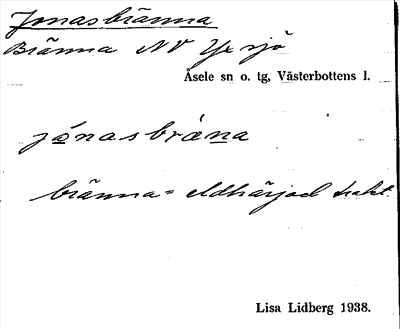 Jonasbränna
Bränna NV Yxsjö
Åsele sn o. tg, Västerbottens l.
jónasbràna
bränna = eldhärjad trakt.
Lisa Lidberg 1938.